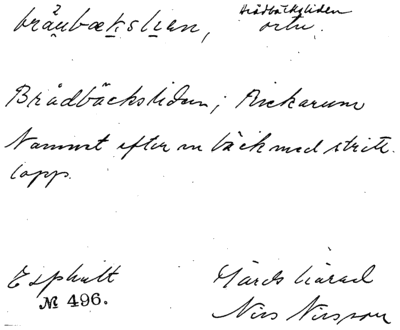 bråubækslian, Brådbäcksliden ortu.
Brådbäckslidun; Rickarum
Namnet efter en bäck med stritt.
lopp.
Esphult Gärds härad
№ 496. Nils Nilsson